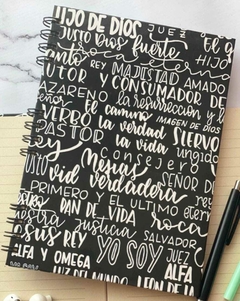 HIJO DE DIOS JUEZ
JUSTO Dios fuerte HIJO
REY MAJESTAD AMADO
AUTOR Y CONSUMADOR DE
NAZARENO la resurrección y l
El camino IMAGEN DE DIOS
VERBO la verdad SIERVO
PASTOR la vida ungido
Mesías consejero
vid verdadera SEÑOR D
PRIMERO Y EL ULTIMO
PAN DE VIDA
nuestra justicia roca
JESUS REY SALVADOR
YO SOY JUEZ
ALFA Y OMEGA ALFA
LUZ DEL MUNDO LEÓN DE LA